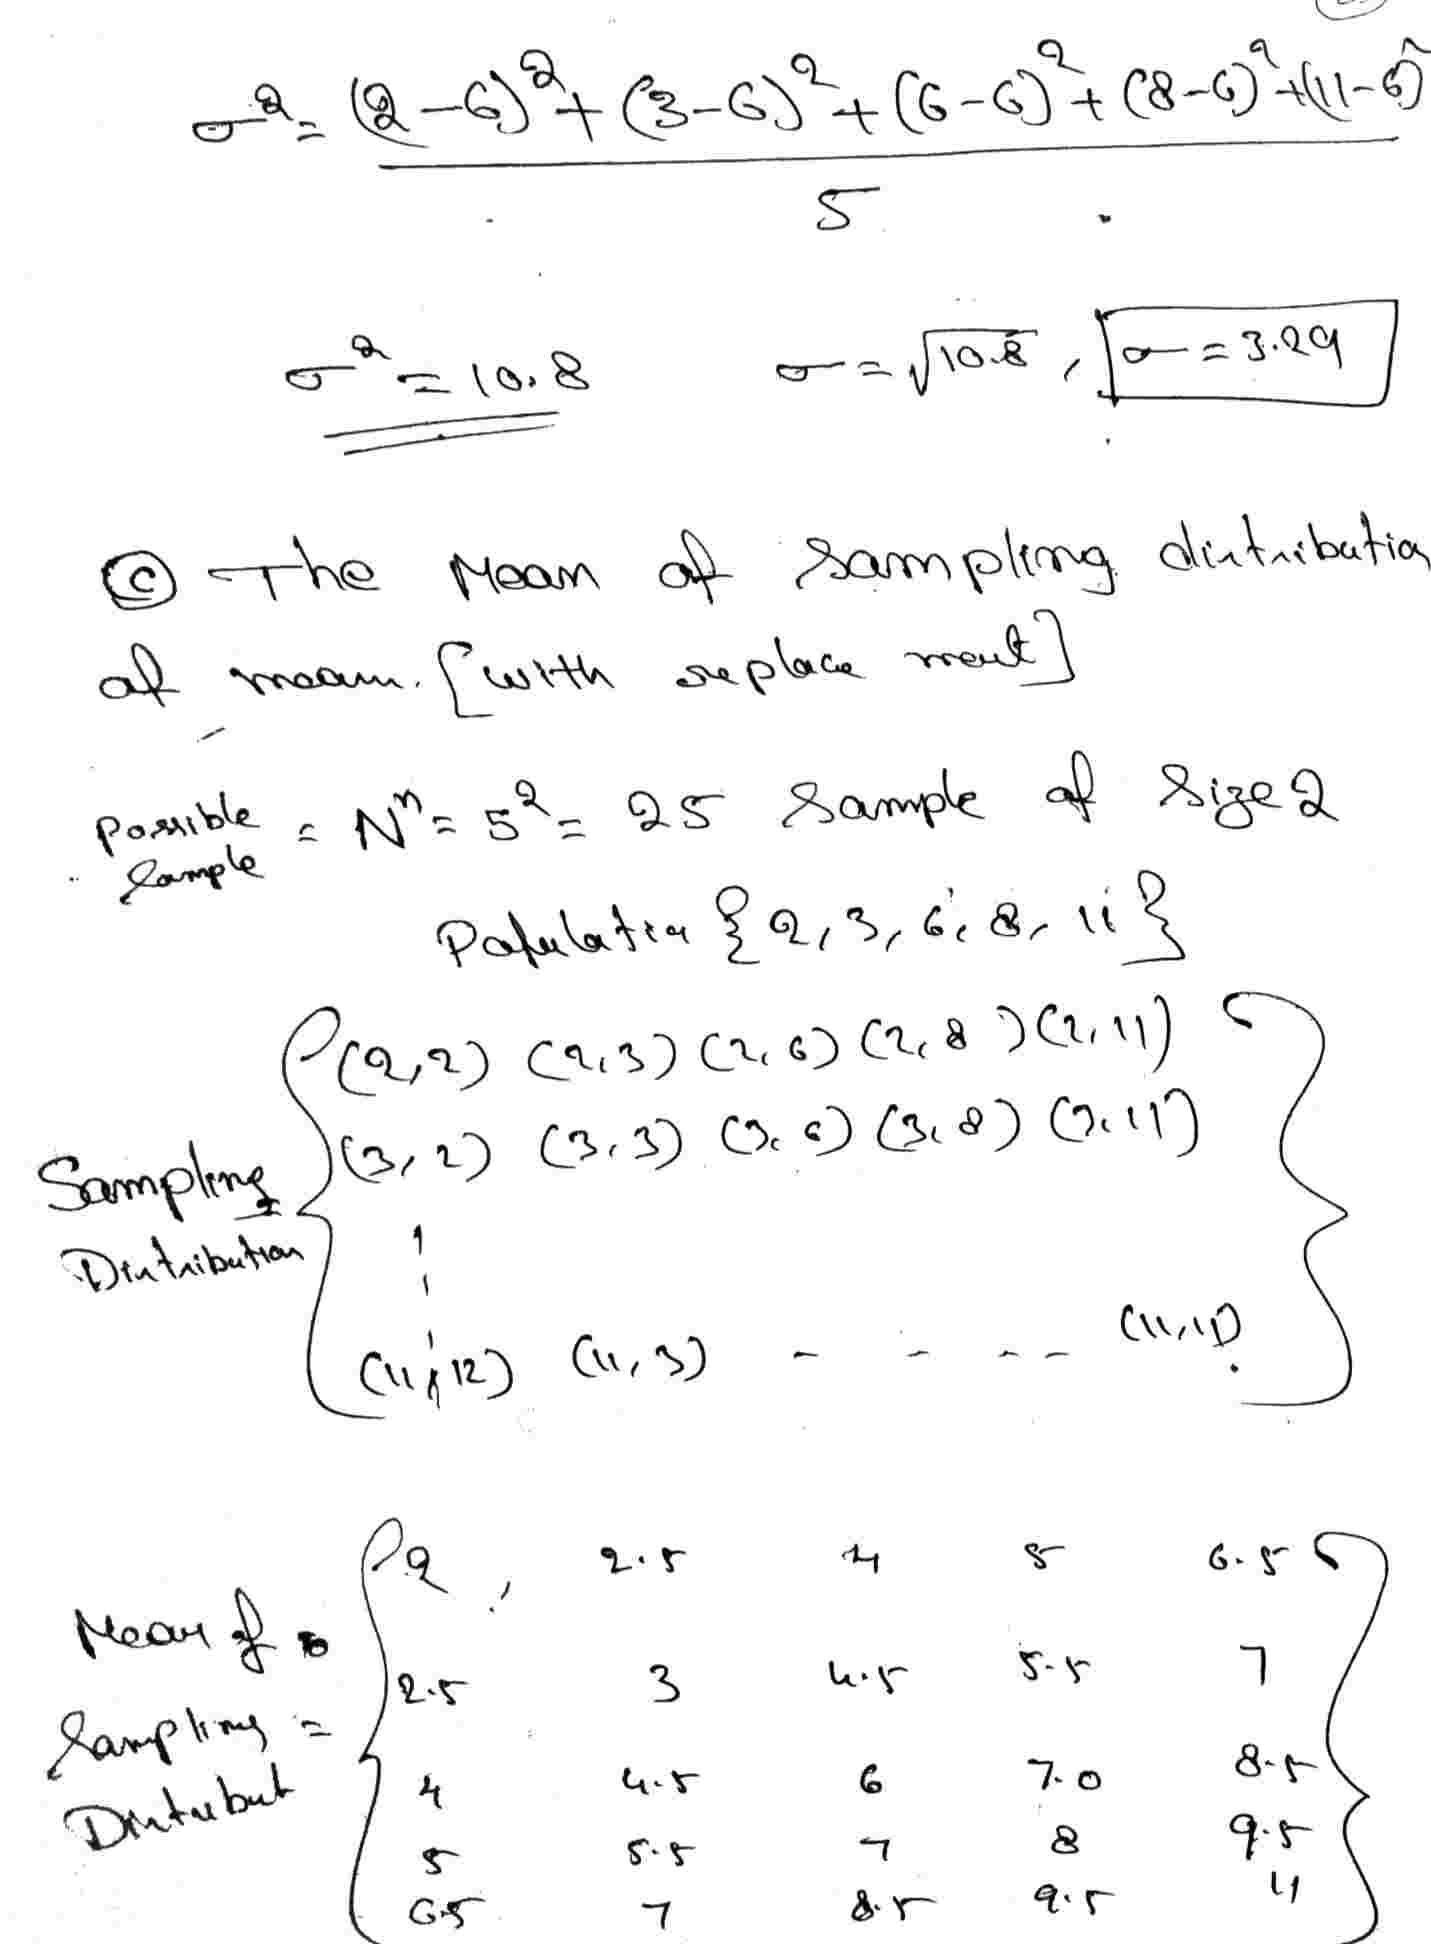 σ² = (2-6)² + (3-6)² + (6-6)² + (8-6)² + (11-6)²
5
σ² = 10.8 σ = √10.8 , σ = 3.29
(c) The Mean of Sampling distribution
of mean. [with replacement]
Possible Sample = Nⁿ = 5² = 25 Sample of Size 2
Population {2, 3, 6, 8, 11}
Sampling Distribution
(2,2) (2,3) (2,6) (2,8) (2,11)
(3,2) (3,3) (3,6) (3,8) (3,11)
(11,12) (11,3) - - - - (11,11)
Mean of Sampling Distribut =
2, 2.5 4 5 6.5
2.5 3 4.5 5.5 7
4 4.5 6 7.0 8.5
5 5.5 7 8 9.5
6.5 7 8.5 9.5 11